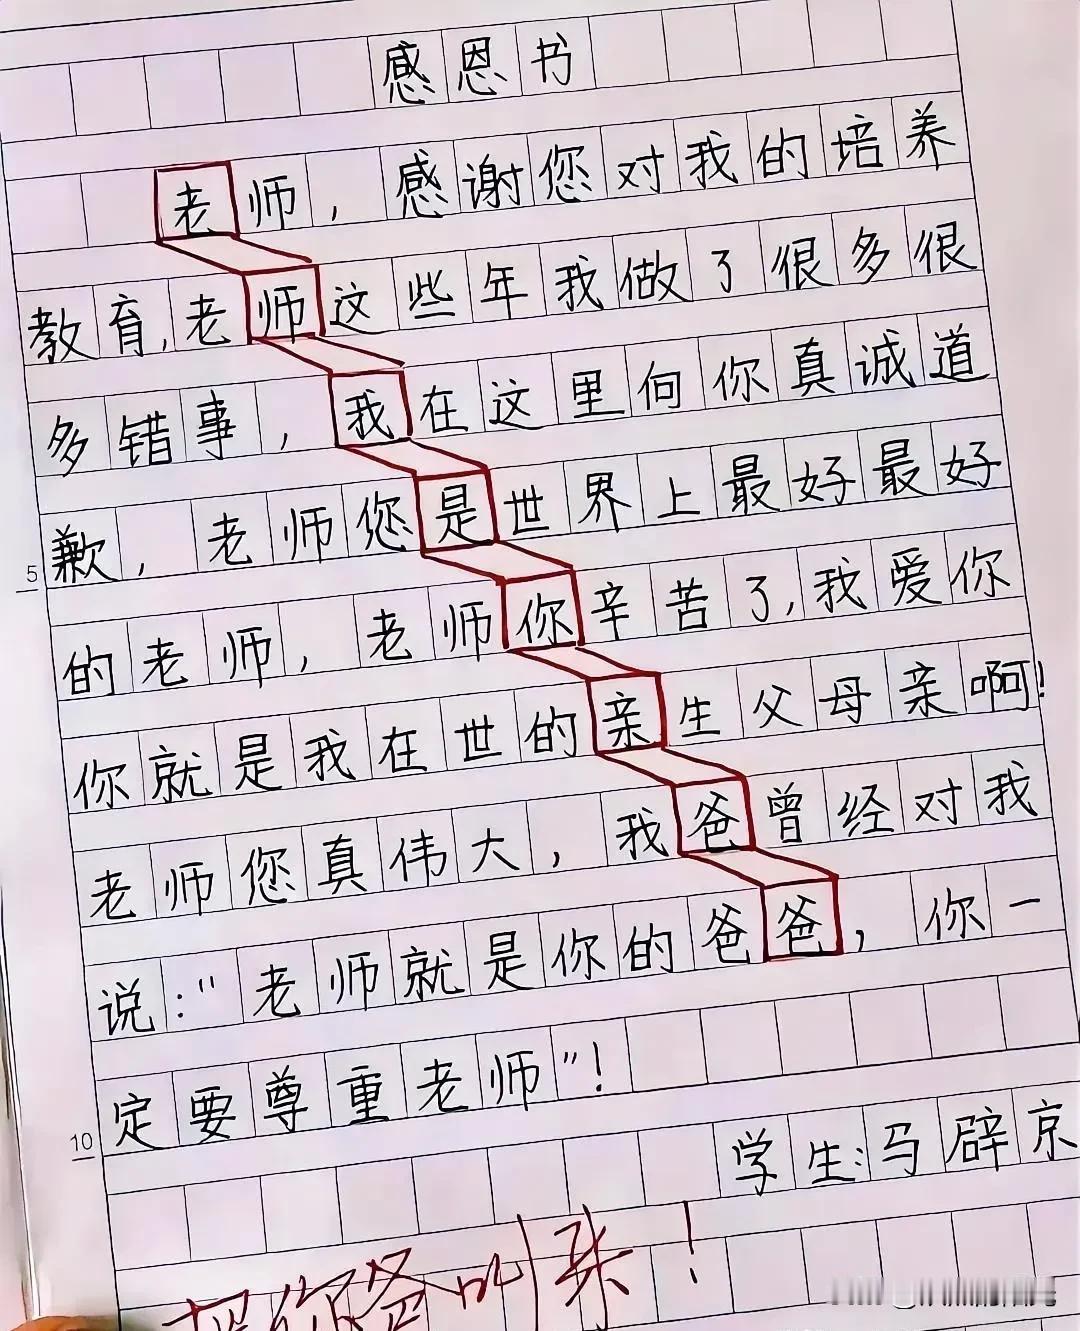 感恩书
老师，感谢您对我的培养
教育,老师这些年我做了很多很
多错事，我在这里向你真诚道
歉，老师您是世界上最好最好
5
的老师，老师你辛苦了,我爱你
你就是我在世的亲生父母亲啊!
老师您真伟大，我爸曾经对我
说:"老师就是你的爸爸，你一
定要尊重老师"!
10
学生:马辟京
把你爸叫来!